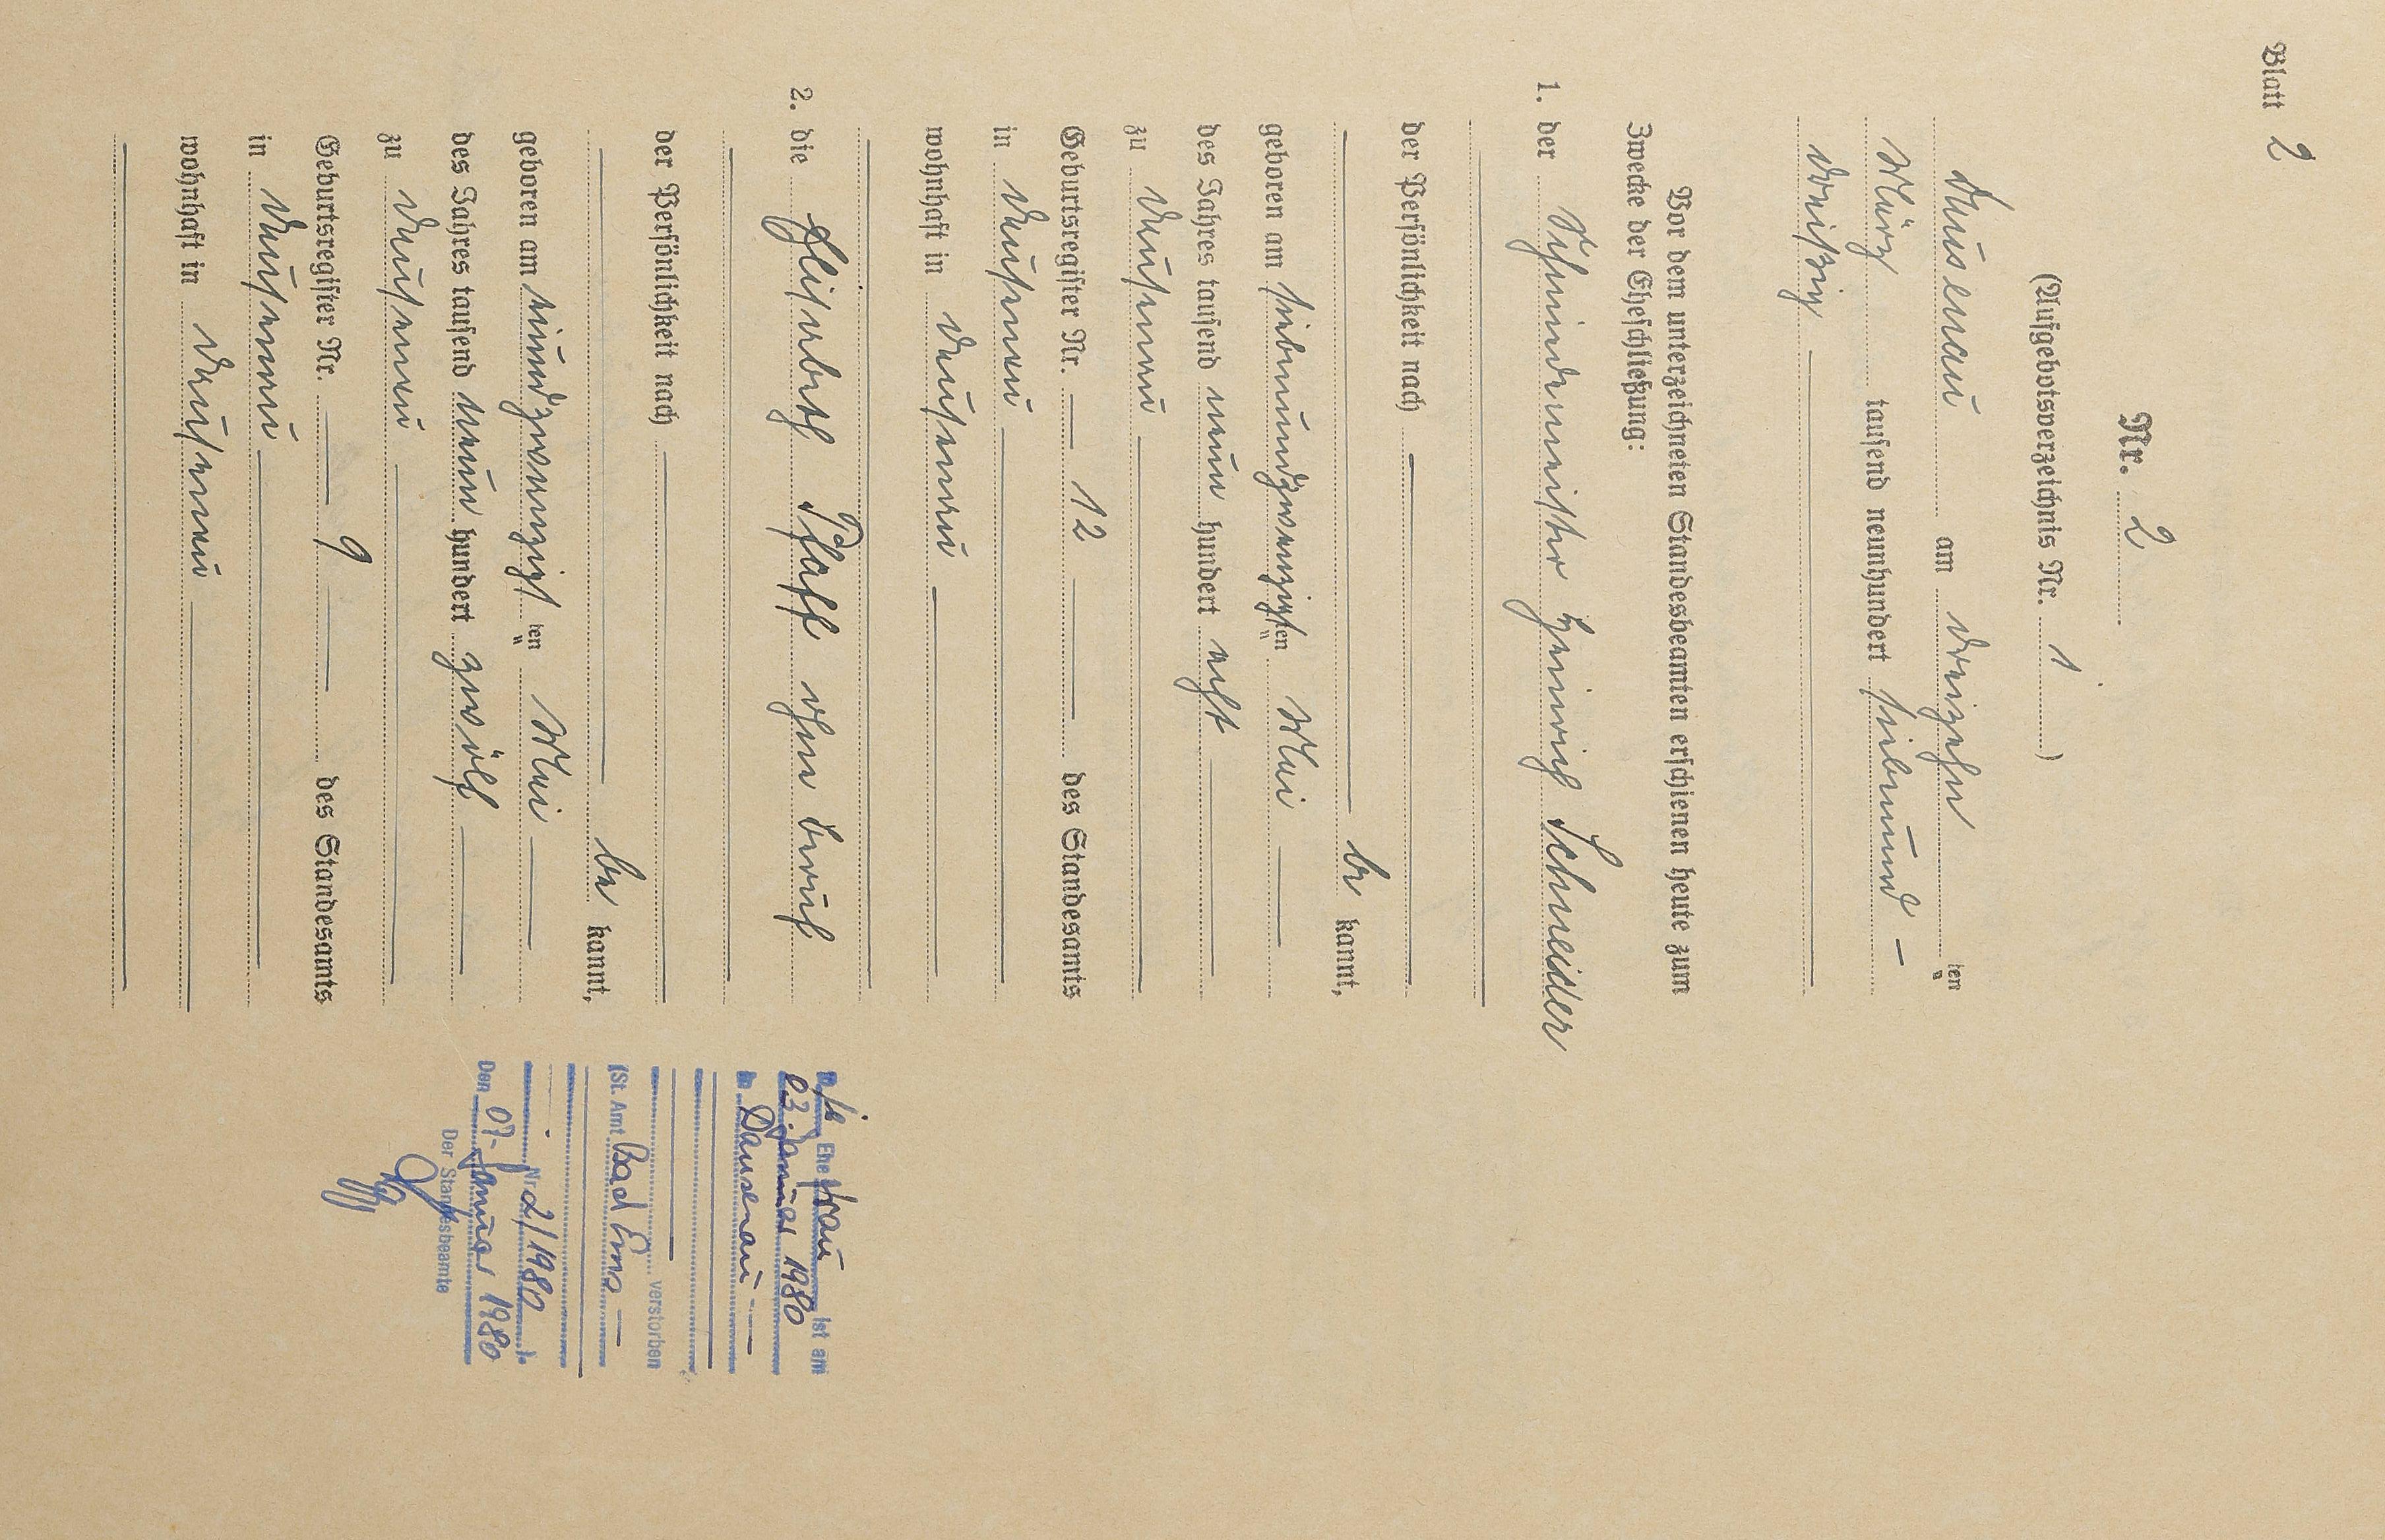 Blatt 2
Nr. 2
(Aufgebotsverzeichnis Nr. 1)
Dausenau am dreizehn ten
März tausend neunhundert siebenund-
dreißig
Vor dem unterzeichneten Standesbeamten erschienen heute zum
Zwecke der Eheschließung:
1. der Schneidermeister Heinrich Schneider
der Persönlichkeit nach
be kannt,
geboren am siebenundzwanzigsten Mai
des Jahres tausend neun hundert acht
zu Dausenau
Geburtsregister Nr. 12 des Standesamts
in Dausenau
wohnhaft in Dausenau
2. die Elisabeth Pfaff ohne Beruf
der Persönlichkeit nach
be kannt,
geboren am einundzwanzigsten Mai
des Jahres tausend neun hundert zwölf
zu Dausenau
Geburtsregister Nr. 9 des Standesamts
in Dausenau
wohnhaft in Dausenau
Ehefrau ist am
03. Januar 1980
in Dausenau
verstorben
(St. Amt Bad Ems
Nr. 2/1980).
Den 07. Januar 1980
Der Standesbeamte